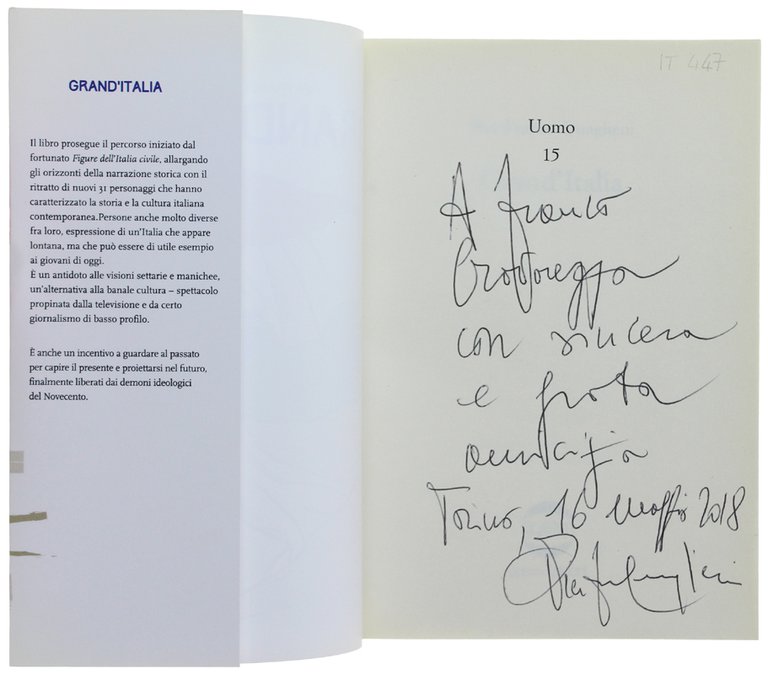 GRAND'ITALIA
Il libro prosegue il percorso iniziato dal
fortunato Figure dell'Italia civile, allargando
gli orizzonti della narrazione storica con il
ritratto di nuovi 31 personaggi che hanno
caratterizzato la storia e la cultura italiana
contemporanea.Persone anche molto diverse
fra loro, espressione di un'Italia che appare
lontana, ma che può essere di utile esempio
ai giovani di oggi.
È un antidoto alle visioni settarie e manichee,
un'alternativa alla banale cultura – spettacolo
propinata dalla televisione e da certo
giornalismo di basso profilo.
È anche un incentivo a guardare al passato
per capire il presente e proiettarsi nel futuro,
finalmente liberati dai demoni ideologici
del Novecento.
IT 447
Uomo
15
A Franco
con sincera
e grata
amicizia
Torino, 16 maggio 2018